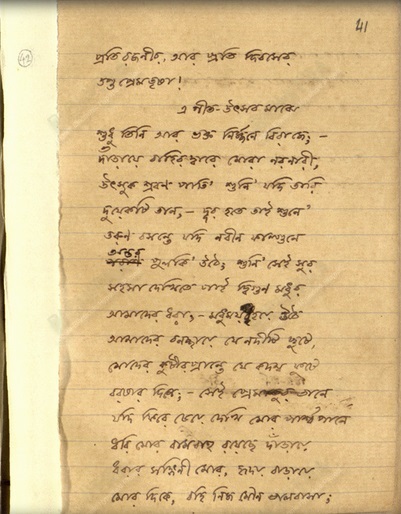 41
42
প্রতি রজনীর, আর প্রতি দিবসের
তপ্ত প্রেমতৃষা!
এ গীত-উৎসব মাঝে
শুধু তিনি আর ভক্ত নির্জ্জনে বিরাজে; –
দাঁড়ায়ে বাহির দ্বারে মোরা নরনারী,
উৎসুক শ্রবণ পাতি' শুনি' যদি তারি
দুয়েকটি তান, – দূর হতে তাই শুনে'
তরুণ বসন্তে যদি নবীন ফাল্গুনে
অন্তর পুলকি' উঠে; শুনি' সেই সুর
সহসা দেখিতে পাই দ্বিগুণ মধুর
আমাদের ধরা; – মধুময় হয়ে উঠে
আমাদের বনচ্ছায়ে যে নদীটি ছুটে,
মোদের কুটীর প্রান্তে যে কদম্ব ফুটে
বরষার দিনে; – সেই প্রেমাতুর তানে
যদি ফিরে চেয়ে দেখি মোর পার্শ্বপানে
ধরি মোর বামবাহু রয়েছে দাঁড়ায়ে
ধরার সঙ্গিনী মোর, হৃদয় বাড়ায়ে
মোর দিকে, বহি নিজ মৌন ভালবাসা;